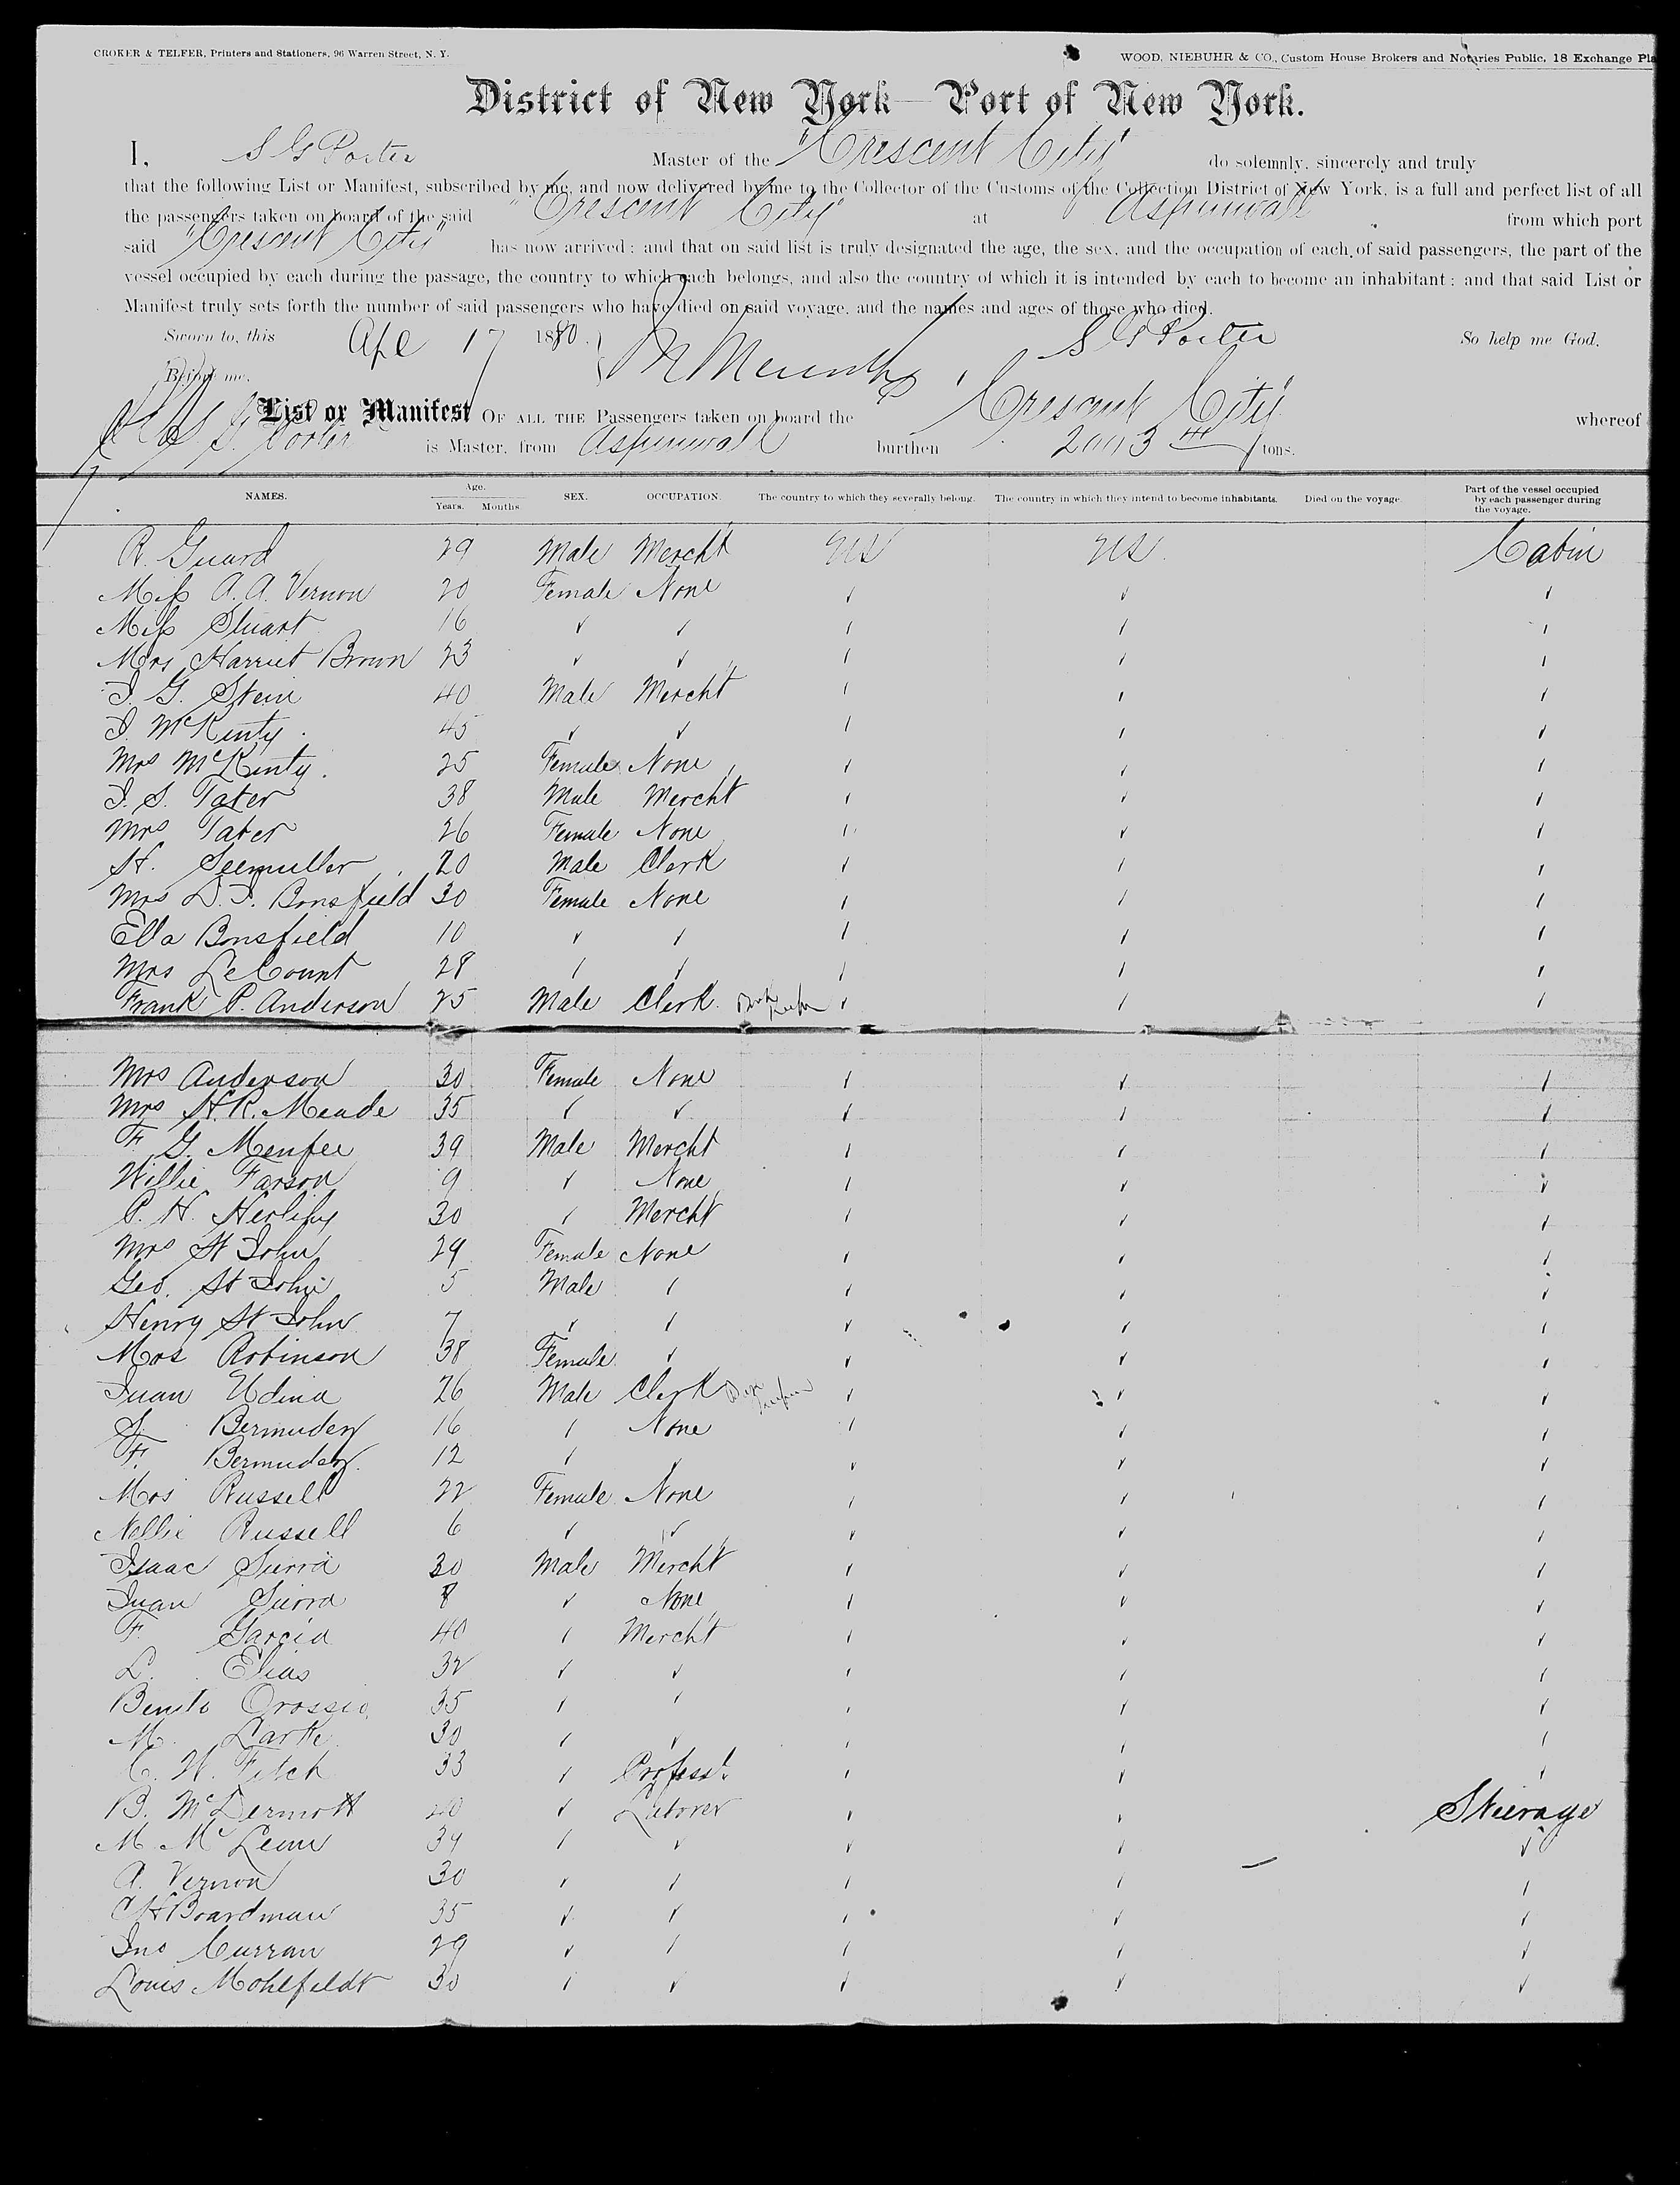 CROKER & TELFER, Printers and Stationers, 96 Warren Street, N. Y.
WOOD, NIEBUHR & CO., Custom House Brokers and Notaries Public, 18 Exchange Pla
District of New York—Port of New York.
I, S G Porter Master of the "Crescent City" do solemnly, sincerely and truly
that the following List or Manifest, subscribed by me, and now delivered by me to the Collector of the Customs of the Collection District of New York, is a full and perfect list of all
the passengers taken on board of the said "Crescent City" at Aspinwall from which port
said "Crescent City" has now arrived; and that on said list is truly designated the age, the sex, and the occupation of each of said passengers, the part of the
vessel occupied by each during the passage, the country to which each belongs, and also the country of which it is intended by each to become an inhabitant; and that said List or
Manifest truly sets forth the number of said passengers who have died on said voyage, and the names and ages of those who died.
Sworn to, this Apl 17 1880. S G Porter So help me God.
Before me,
List or Manifest OF ALL THE Passengers taken on board the Crescent City whereof
S. G. Porter is Master, from Aspinwall burthen tons.
NAMES. Age. Years. Months. SEX. OCCUPATION. The country to which they severally belong. The country in which they intend to become inhabitants. Died on the voyage. Part of the vessel occupied by each passenger during the voyage.
R. Guard 29 Male Mercht US US Cabin
Miss A. A. Vernon 20 Female None
Miss Stuart 16 ✓ ✓
Mrs Harriet Brown 23 ✓ ✓
I. G. Stein 40 Male Mercht
I. McKinty 45 ✓ ✓
Mrs McKinty 25 Female None
I. S. Tater 38 Male Mercht
Mrs Tater 26 Female None
H. Seemuller 20 Male Clerk
Mrs D. I. Bonsfield 30 Female None
Ella Bonsfield 10 ✓ ✓
Mrs LeCount 28 ✓ ✓
Frank P. Anderson 25 Male Clerk
Mrs Anderson 30 Female None
Mrs H. R. Meade 35 ✓ ✓
F. G. Menfee 39 Male Mercht
Willie Farson 9 ✓ None
P. H. Herlihy 30 ✓ Mercht
Mrs St John 29 Female None
Geo. St John 5 Male ✓
Henry St John 7 ✓ ✓
Mrs Robinson 38 Female ✓
Juan Udina 26 Male Clerk
S. Bermudez 16 ✓ None
F. Bermudez 12 ✓ ✓
Mrs Russell 22 Female None
Nellie Russell 6 ✓ ✓
Isaac Sierra 30 Male Mercht
Juan Sierra 8 ✓ None
F. Garcia 40 ✓ Mercht
L. Elias 32 ✓ ✓
Benito Orossio 35 ✓ ✓
M. Larke 30 ✓ ✓
C. W. Fitch 33 ✓ Profess.
B. McDermott 40 ✓ Laborer Steerage
M. McLean 34 ✓ ✓
A. Vernon 30 ✓ ✓
C H Boardman 35 ✓ ✓
Jno Curran 29 ✓ ✓
Louis Mohlfeldt 30 ✓ ✓